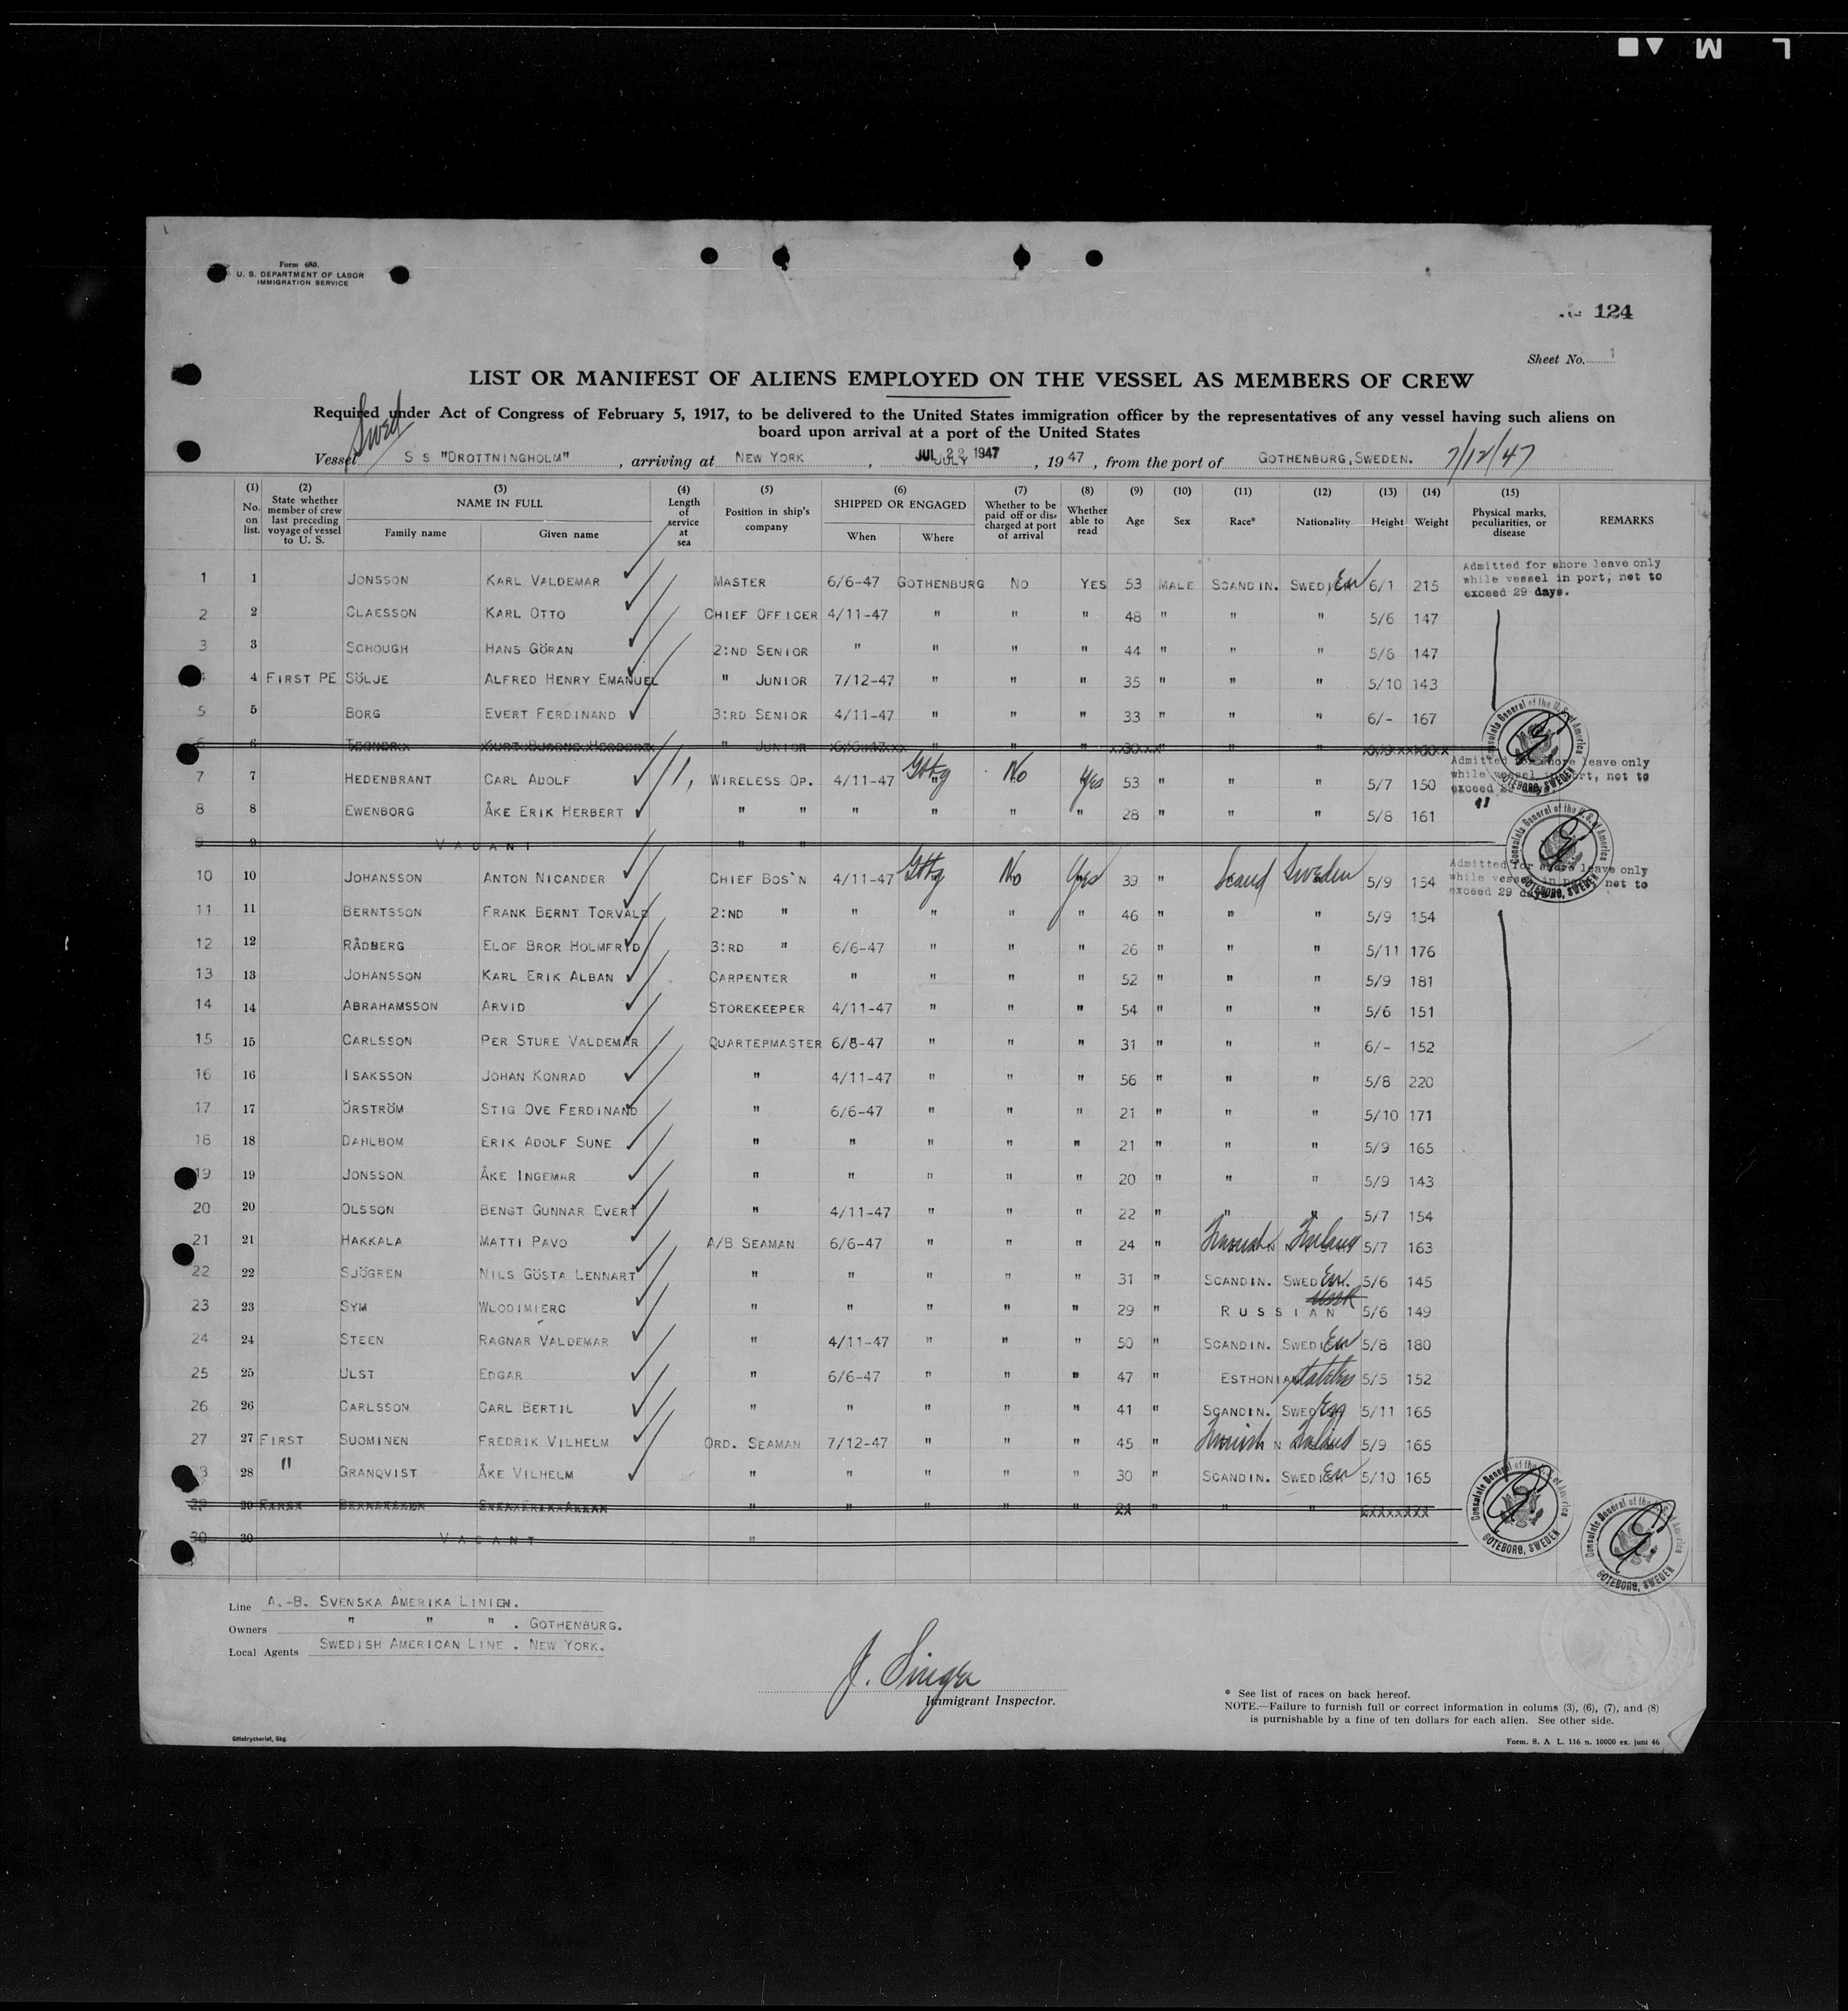 L M
Form 680.
U. S. DEPARTMENT OF LABOR
IMMIGRATION SERVICE
124
Sheet No. 1
LIST OR MANIFEST OF ALIENS EMPLOYED ON THE VESSEL AS MEMBERS OF CREW
Required under Act of Congress of February 5, 1917, to be delivered to the United States immigration officer by the representatives of any vessel having such aliens on
board upon arrival at a port of the United States
Swed
Vessel S S "DROTTNINGHOLM", arriving at NEW YORK, JULY JUL 22 1947, 1947, from the port of GOTHENBURG, SWEDEN. 7/12/47
(1) No. on list. (2) State whether member of crew last preceding voyage of vessel to U. S. (3) NAME IN FULL Family name Given name (4) Length of service at sea (5) Position in ship's company (6) SHIPPED OR ENGAGED When Where (7) Whether to be paid off or discharged at port of arrival (8) Whether able to read (9) Age (10) Sex (11) Race* (12) Nationality (13) Height (14) Weight (15) Physical marks, peculiarities, or disease REMARKS
1 1 JONSSON KARL VALDEMAR MASTER 6/6-47 GOTHENBURG NO YES 53 MALE SCANDIN. SWEDEN 6/1 215 Admitted for shore leave only while vessel in port, not to exceed 29 days.
2 2 CLAESSON KARL OTTO CHIEF OFFICER 4/11-47 " " " 48 " " " 5/6 147
3 3 SCHOUGH HANS GÖRAN 2:ND SENIOR " " " " 44 " " " 5/6 147
4 4 FIRST PE SÖLJE ALFRED HENRY EMANUEL " JUNIOR 7/12-47 " " " 35 " " " 5/10 143
5 5 BORG EVERT FERDINAND 3:RD SENIOR 4/11-47 " " " 33 " " " 6/- 167
6 6 " JUNIOR " " " " " "
7 7 HEDENBRANT CARL ADOLF WIRELESS OP. 4/11-47 Gotbg No Yes 53 " " " 5/7 150 Admitted for shore leave only while vessel in port, not to exceed 29 days
8 8 EWENBORG ÅKE ERIK HERBERT " " " " " " 28 " " " 5/8 161 "
9 9 VACANT " "
10 10 JOHANSSON ANTON NICANDER CHIEF BOS'N 4/11-47 Gotbg No Yes 39 " Scand Sweden 5/9 154 Admitted for shore leave only while vessel in port, not to exceed 29 days
11 11 BERNTSSON FRANK BERNT TORVALD 2:ND " " " " " 46 " " " 5/9 154
12 12 RÅDBERG ELOF BROR HOLMFRID 3:RD " 6/6-47 " " " 26 " " " 5/11 176
13 13 JOHANSSON KARL ERIK ALBAN CARPENTER " " " " 52 " " " 5/9 181
14 14 ABRAHAMSSON ARVID STOREKEEPER 4/11-47 " " " 54 " " " 5/6 151
15 15 CARLSSON PER STURE VALDEMAR QUARTEPMASTER 6/6-47 " " " 31 " " " 6/- 152
16 16 ISAKSSON JOHAN KONRAD " 4/11-47 " " " 56 " " " 5/8 220
17 17 ÖRSTRÖM STIG OVE FERDINAND " 6/6-47 " " " 21 " " " 5/10 171
18 18 DAHLBOM ERIK ADOLF SUNE " " " " " 21 " " " 5/9 165
19 19 JONSSON ÅKE INGEMAR " " " " " 20 " " " 5/9 143
20 20 OLSSON BENGT GUNNAR EVERT " 4/11-47 " " " 22 " " " 5/7 154
21 21 HAKKALA MATTI PAVO A/B SEAMAN 6/6-47 " " " 24 " Finnish Finland 5/7 163
22 22 SJÖGREN NILS GÖSTA LENNART " " " " " 31 " SCANDIN. SWEDEN. 5/6 145
23 23 SYM WLODIMIERC " " " " " 29 " RUSSIAN USSR 5/6 149
24 24 STEEN RAGNAR VALDEMAR " 4/11-47 " " " 50 " SCANDIN. SWEDEN 5/8 180
25 25 ULST EDGAR " 6/6-47 " " " 47 " ESTHONIAN 5/5 152
26 26 CARLSSON CARL BERTIL " " " " " 41 " SCANDIN. SWEDEN 5/11 165
27 27 FIRST SUOMINEN FREDRIK VILHELM ORD. SEAMAN 7/12-47 " " " 45 " Finnish Finland 5/9 165
28 28 " GRANQVIST ÅKE VILHELM " " " " " 30 " SCANDIN. SWEDEN 5/10 165
29 29 " " " " " " " "
30 30 VACANT "
Consulate General of the U. S. of America
GÖTEBORG, SWEDEN
Consulate General of the U. S. of America
GÖTEBORG, SWEDEN
Consulate General of the U. S. of America
GÖTEBORG, SWEDEN
Consulate General of the U. S. of America
GÖTEBORG, SWEDEN
Line A.-B. SVENSKA AMERIKA LINIEN.
Owners " " " . GOTHENBURG.
Local Agents SWEDISH AMERICAN LINE . NEW YORK.
J. Singer
Immigrant Inspector.
* See list of races on back hereof.
NOTE.—Failure to furnish full or correct information in colums (3), (6), (7), and (8)
is purnishable by a fine of ten dollars for each alien. See other side.
Götatryckeriet, Gbg
Form. S. A L. 116 n. 10000 ex. juni 46